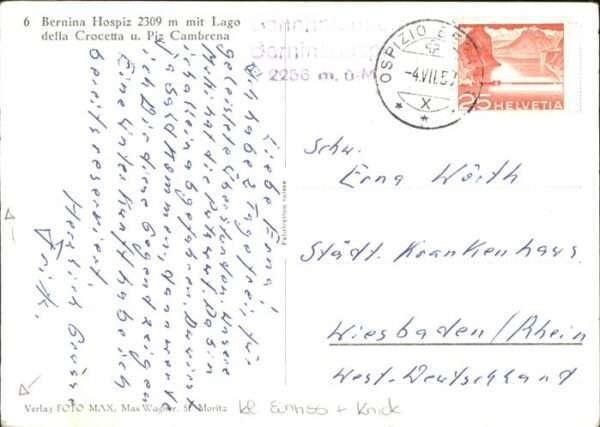 6 Bernina Hospiz 2309 m mit Lago
della Crocetta u. Piz Cambrena
Bernina
2256 m. ü. M
OSPIZIO
-4.VII.5
X
25 HELVETIA
Liebe Erna!
Ich habe 2 Tage frei, für
geleistete Überstunden. Unsere
hat die Da bin
ich allein abgefahren. Du wirst
ja bald kommen, dann werde
ich Dir diese Gegend zeigen
Eine Unterkunft habe ich
bereits reserviert.
Herzlich Grüsse
Fritz.
Schw.
Erna Wörth
Städt. Krankenhaus.
Wiesbaden/Rhein
West-Deutschland
Verlag FOTO MAX, Max Wagner, St. Moritz
kl Einriss + Knick